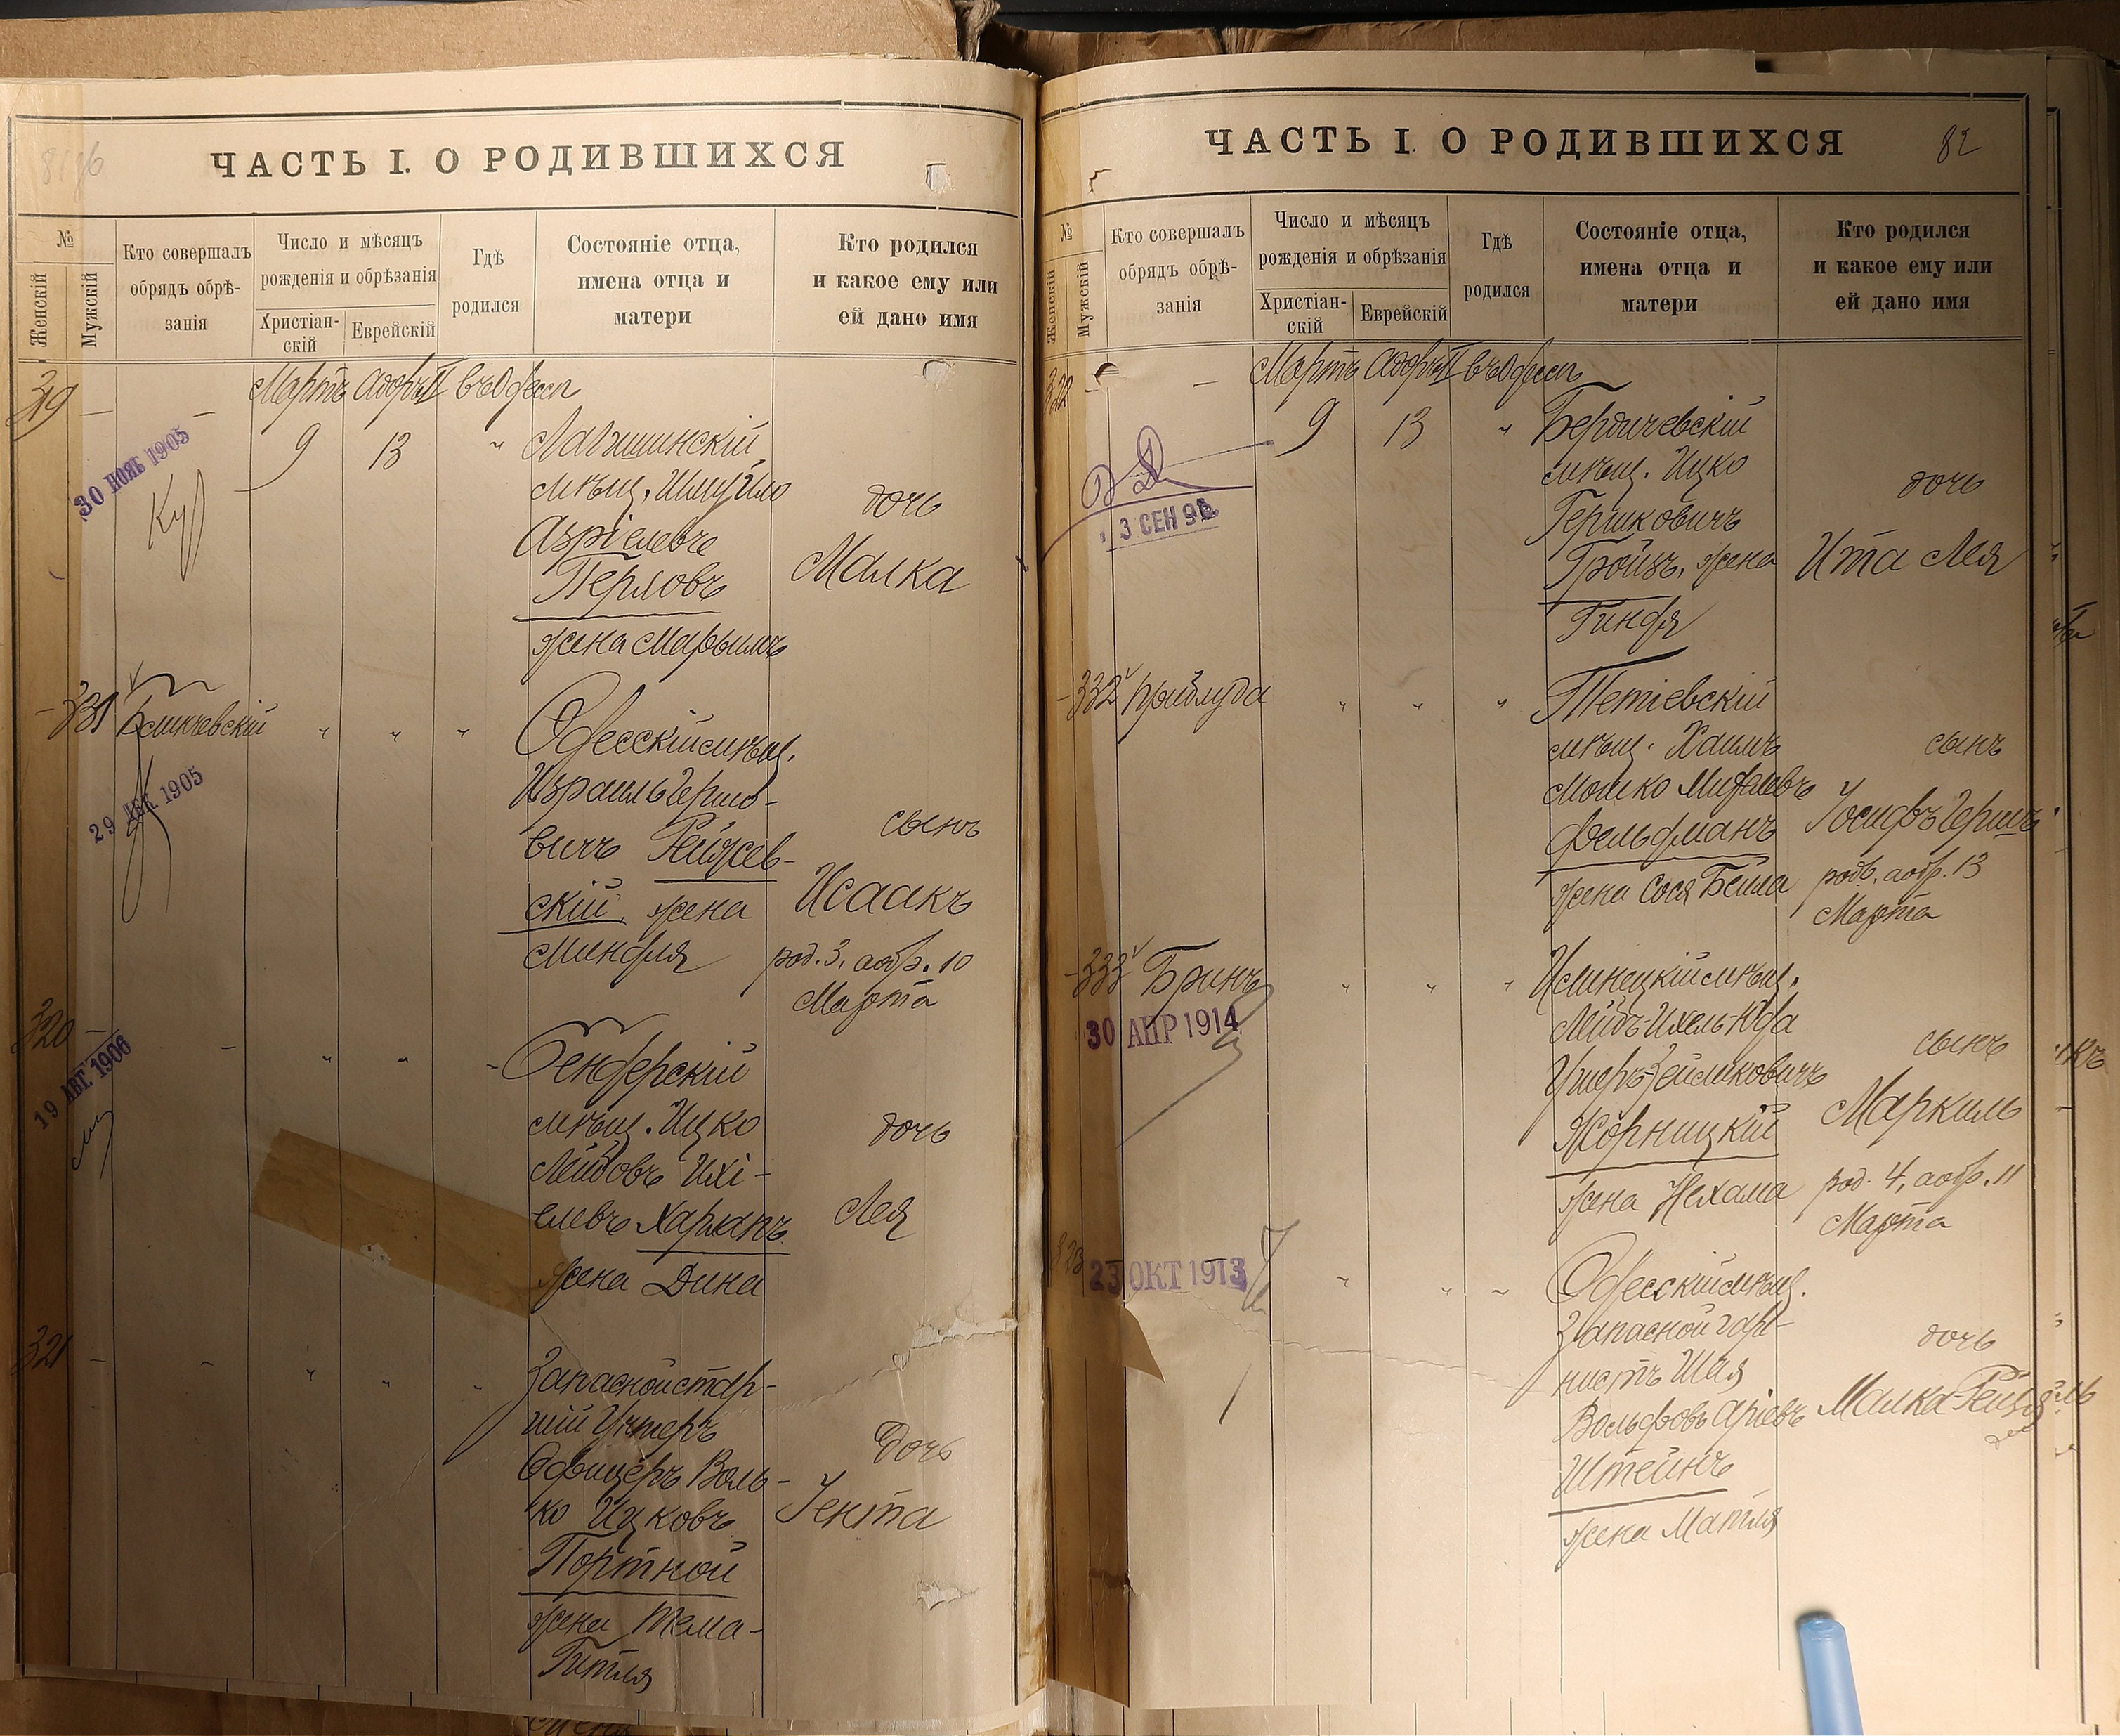 ЧАСТЬ I. О РОДИВШИХСЯ
№
Женскій
Мужскій
Кто совершалъ
обрядъ обрѣ-
занія
Число и мѣсяцъ
рожденія и обрѣзанія
Христіан-
скій
Еврейскій
Гдѣ
родился
Состояніе отца,
имена отца и
матери
Кто родился
и какое ему или
ей дано имя
Мартъ Адаръ II въ Одессѣ
319 — — 9 13 "
30 НОЯБ 1905
Лагишинскій
мѣщ. Шмуйло
Азріелевъ
Перловъ
жена Марьимъ
дочь
Малка
331 " " "
29 ДЕК 1905
Одесскій мѣщ.
Израиль Гершо-
вичъ Рейжев-
скій, жена
Миндля
сынъ
Исаакъ
род. 3, а обр. 10
Марта
320 — — " " "
19 АВГ. 1906
Бендерскій
мѣщ. Ицко
Лейбовъ Ихі-
елевъ
жена Дина
дочь
Лея
321 — — " " "
Запасной стар-
шій Унтеръ
Офицеръ Воль-
ко Ицковъ
Портной
жена Тема-
Гитля
дочь
Іента
ЧАСТЬ I. О РОДИВШИХСЯ
82
№
Женскій
Мужскій
Кто совершалъ
обрядъ обрѣ-
занія
Число и мѣсяцъ
рожденія и обрѣзанія
Христіан-
скій
Еврейскій
Гдѣ
родился
Состояніе отца,
имена отца и
матери
Кто родился
и какое ему или
ей дано имя
Мартъ Адаръ II въ Одессѣ
322 — — 9 13 "
3 СЕН 98
Бердичевскій
мѣщ. Ицко
Гершковичъ
Гройзъ, жена
Гиндя
дочь
Ита Лея
332 Приблуда " " "
Тетіевскій
мѣщ. Хаимъ
Мошко
Фельдманъ
жена Сося Бейла
сынъ
Іосифъ Гершъ
род. 6, а обр. 13
Марта
333 Бринъ " " "
30 АПР 1914
Илинецкій мѣщ.
Лейбъ-Ихель-Юда
Ушеръ-Зейликовичъ
Жорницкій
жена Нехама
сынъ
Маркиль
род. 4, а обр. 11
Марта
323 " " "
23 ОКТ 1913
Одесскій мѣщ.
Запасной гор-
нистъ Шая
Вольфовъ Аріевъ
Штейнъ
жена Матля
дочь
Малка-Рейзль